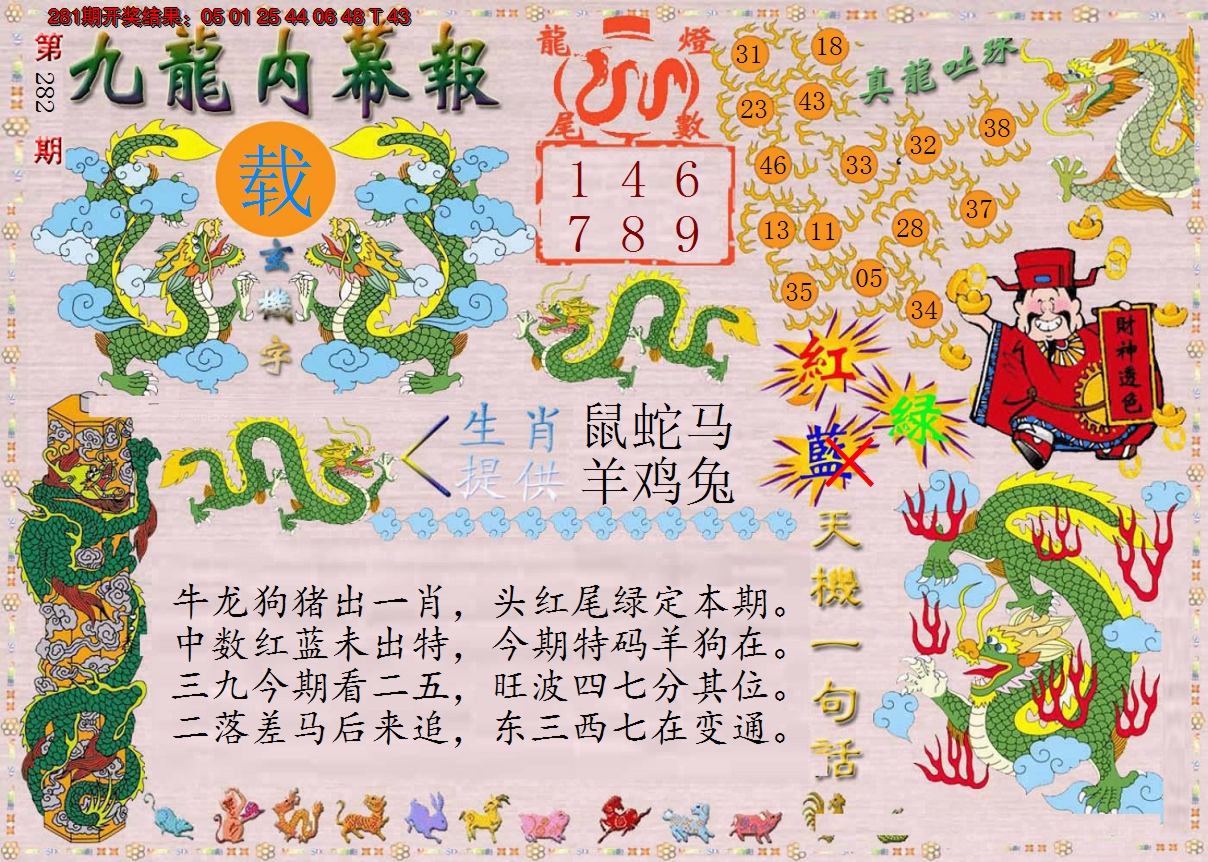 281期开奖结果：05 01 25 44 06 48 T 43
第282期
九龍内幕報
载
玄機字
龍燈尾數
1 4 6
7 8 9
真龍吐珠
31 18
23 43
46 33 32 38
13 11 28 37
35 05 34
財神透色
紅
绿
藍
生肖提供
鼠蛇马
羊鸡兔
天機一句话
牛龙狗猪出一肖，头红尾绿定本期。
中数红蓝未出特，今期特码羊狗在。
三九今期看二五，旺波四七分其位。
二落差马后来追，东三西七在变通。